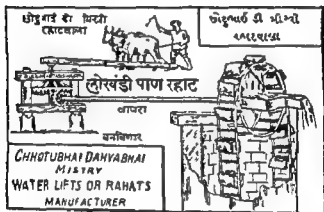 छोटुभाई डी मिस्त्री
रहाटवाला
છોટુભાઈ ડી મીસ્ત્રી
રહાટવાળા
लोखंडी पाण रहाट
वापरा
बनविणार
CHHOTUBHAI DAHYABHAI
MISTRY
WATER LIFTS OR RAHATS
MANUFACTURER